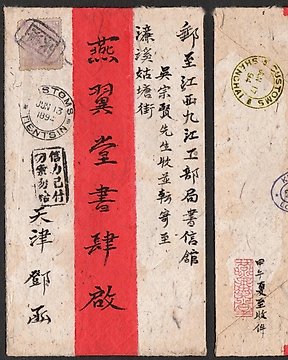 郵至江西九江工部局書信館
吳宗賢先生收並轉寄至
濂溪姑塘街
燕翼堂書肆啟
天津鄧函
信力已付
STOMS
JUN 13
TIENTSIN
CUSTOMS
甲午夏至收件